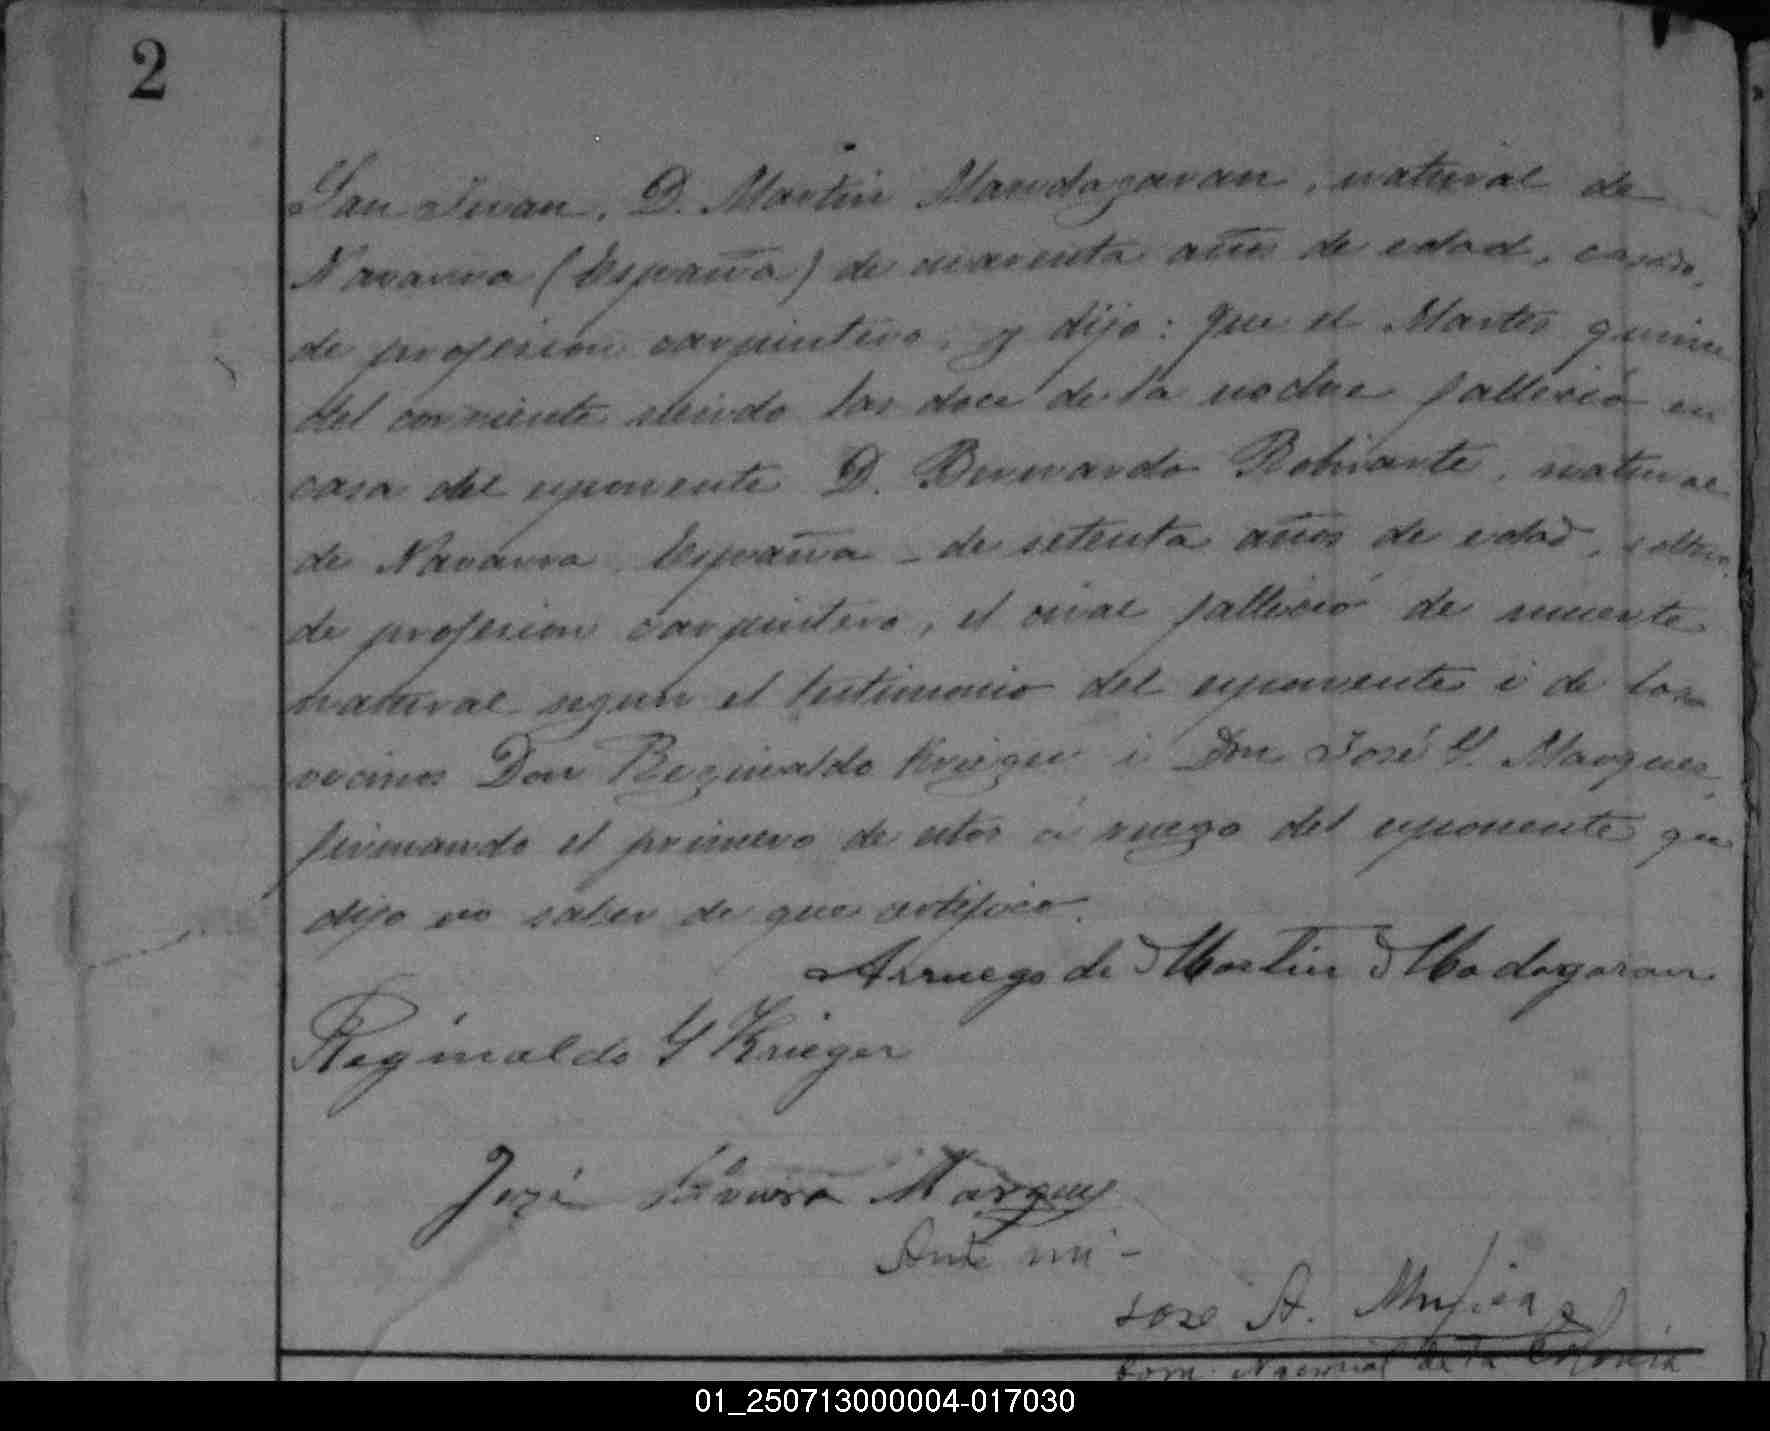 2
San Juan, D. Martin Mandagaran, natural de
Navarra (España) de cuarenta años de edad, casado,
de profesion carpintero, y dijo: Que el Martes quince
del corriente siendo las doce de la noche fallesió en
casa del esponente D. Bernardo
natural
de Navarra España - de setenta años de edad, soltero,
de profesion carpintero, el cual fallesió de muerte
natural segun el testimonio del esponente i de los
vecinos Don Reginaldo Krieger i Don José G. Marques,
firmando el primero de estos á ruego del esponente que
dijo no saber de que certifico.
Arruego de Martin Madagaran
Reginaldo G Krieger
José Marques
Ante mi -
José A.
de la Colonia
01_250713000004-017030